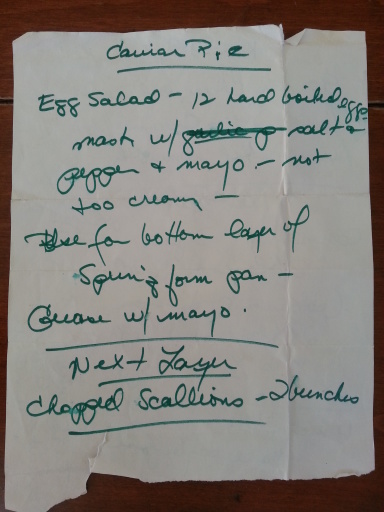 Caviar Pie
Egg Salad - 12 hard boiled eggs
mash w/ salt &
pepper & mayo - not
too creamy -
Use for bottom layer of
Spring form pan -
Grease w/ mayo.
Next Layer
Chopped Scallions - 2 bunches